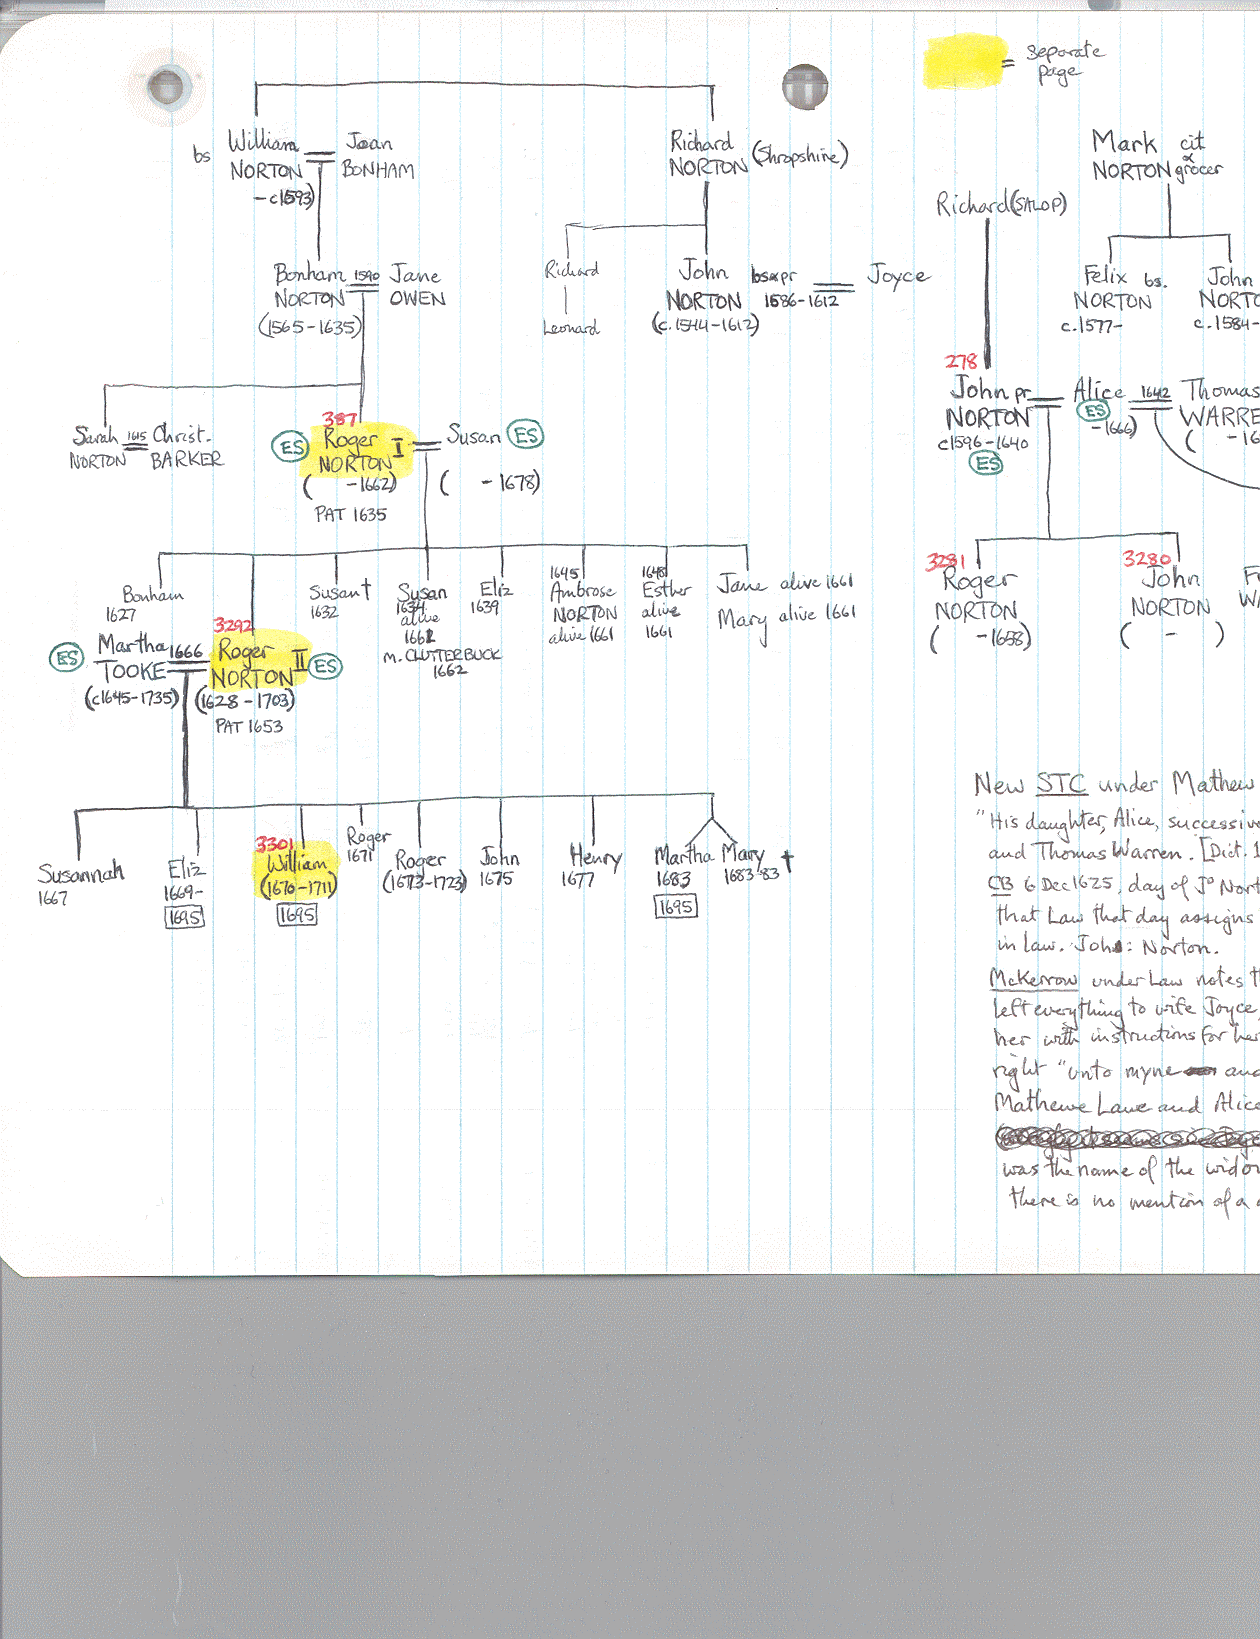 = Separate
page
William
bs
NORTON
-c1593)
Joan
BONHAM
Richard
NORTON (Shropshire)
Mark cit
&
NORTON grocer
Richard (SALOP)
Bonham 1590 Jane
NORTON OWEN
(1565-1635)
Richard
Leonard
John bs&pr Joyce
NORTON 1586-1612
(c.1544-1612)
Felix bs.
NORTON
c.1577-
John
NORTO
c.1584-
278
John pr
NORTON
c1596-1640
ES
Alice 1642 Thomas
ES WARRE
-1666) ( -16
Sarah 1615 Christ.
NORTON BARKER
387
ES Roger I Susan ES
NORTON
( -1662) ( -1678)
PAT 1635
3281
Roger
NORTON
( -1658)
3280
John
NORTON
( - )
F
WA
Bonham
1627
Susan†
1632
Susan
1634
alive
1661
m. CLUTTERBUCK
1662
Eliz
1639
1645
Ambrose
NORTON
alive 1661
1648
Esther
alive
1661
Jane alive 1661
Mary alive 1661
3292
ES Martha 1666 Roger II ES
TOOKE NORTON
(c1645-1735) (1628-1703)
PAT 1653
Susannah
1667
Eliz
1669-
1695
3301
William
(1670-1711)
1695
Roger
1671
Roger
(1673-1723)
John
1675
Henry
1677
Martha Mary †
1683 1683-83
1695
New STC under Mathew
"His daughter, Alice, successive
and Thomas Warren. [Dict. 1
CB 6 Dec 1625, day of Jº Nort
that Law that day assigns
in law. John: Norton.
McKerrow under Law notes th
left everything to wife Joyce,
her with instructions for her
right "unto myne and
Mathewe Lawe and Alice
was the name of the widow
there is no mention of a d